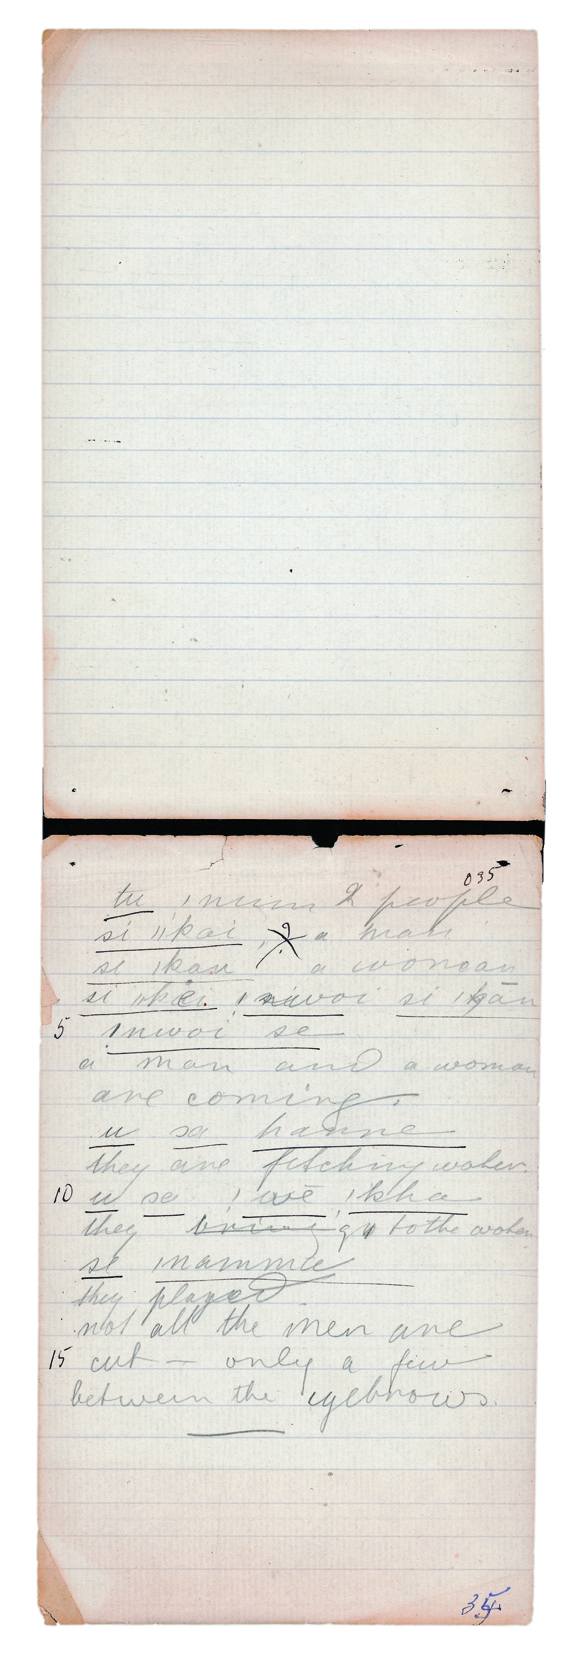 035
tu ǀnum 2 people
si ǁkai ? a man
se ǀkau a woman
si ǁkei ǃnwoi si ǀkān
5 ǃnwoi se
a man and a woman
are coming.
u sa hanne
they are fetching water.
10 u se ǃwē ǀkha
they go to the water
se ǀnammie
they played
not all the men are
15 cut — only a few
between the eyebrows.
35